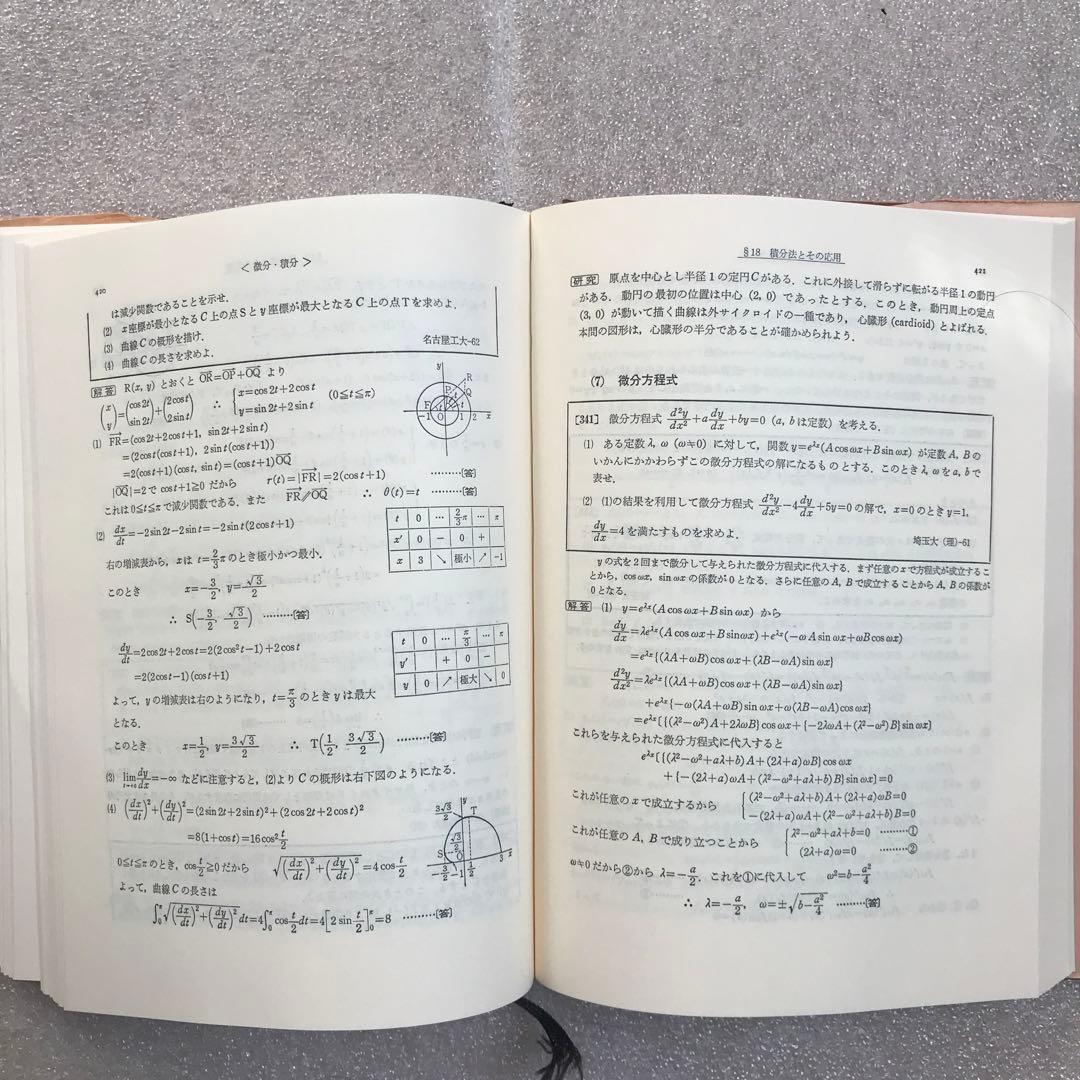 420
< 微分・積分 >
は減少関数であることを示せ.
(2) x座標が最小となる C 上の点Sとy座標が最大となる C 上の点Tを求めよ.
(3) 曲線 C の概形を描け.
(4) 曲線 C の長さを求めよ.
名古屋工大-62
解答 R(x, y) とおくと OR→=OP→+OQ→ より
(x y)=(cos2t sin2t)+(2cost 2sint) ∴ {x=cos2t+2cost y=sin2t+2sint (0≦t≦π)
(1) FR→=(cos2t+2cost+1, sin2t+2sint)
=(2cost(cost+1), 2sint(cost+1))
=2(cost+1)(cost, sint)=(cost+1)OQ→
|OQ→|=2で cost+1≧0 だから r(t)=|FR→|=2(cost+1) ………〔答〕
これは 0≦t≦π で減少関数である. また FR→∥OQ→ ∴ θ(t)=t ………〔答〕
(2) dx/dt=-2sin2t-2sint=-2sint(2cost+1)
右の増減表から, xは t=2/3π のとき極小かつ最小.
t 0 … 2/3π … π
x′ 0 − 0 +
x 3 ↘ 極小 ↗ −1
このとき x=-3/2, y=√3/2
∴ S(-3/2, √3/2) ………〔答〕
dy/dt=2cos2t+2cost=2(2cos²t-1)+2cost
=2(2cost-1)(cost+1)
t 0 … π/3 … π
y′ + 0 −
y 0 ↗ 極大 ↘ 0
よって, yの増減表は右のようになり, t=π/3 のとき y は最大
となる.
このとき x=1/2, y=3√3/2 ∴ T(1/2, 3√3/2) ………〔答〕
(3) lim t→+0 dy/dx=-∞ などに注意すると, (2)より C の概形は右下図のようになる.
(4) (dx/dt)²+(dy/dt)²=(2sin2t+2sint)²+(2cos2t+2cost)²
=8(1+cost)=16cos² t/2
0≦t≦π のとき, cos t/2≧0 だから √((dx/dt)²+(dy/dt)²)=4cos t/2
よって, 曲線 C の長さは
∫₀^π √((dx/dt)²+(dy/dt)²)dt=4∫₀^π cos t/2 dt=4[2sin t/2]₀^π=8 ………〔答〕
§18 積分法とその応用
421
研究 原点を中心とし半径1の定円Cがある. これに外接して滑らずに転がる半径1の動円
がある. 動円の最初の位置は中心 (2, 0) であったとする. このとき, 動円周上の定点
(3, 0) が動いて描く曲線は外サイクロイドの一種であり, 心臓形 (cardioid) とよばれる.
本問の図形は, 心臓形の半分であることが確かめられよう.
(7) 微分方程式
[341] 微分方程式 d²y/dx²+a dy/dx+by=0 (a, bは定数) を考える.
(1) ある定数 λ, ω (ω≠0) に対して, 関数 y=e^λx(Acosωx+Bsinωx) が定数 A, B の
いかんにかかわらずこの微分方程式の解になるものとする. このとき λ, ω を a, b で
表せ.
(2) (1)の結果を利用して微分方程式 d²y/dx²-4dy/dx+5y=0 の解で, x=0 のとき y=1,
dy/dx=4 を満たすものを求めよ.
埼玉大 (理)-61
yの式を2回まで微分して与えられた微分方程式に代入する. まず任意の x で方程式が成立するこ
とから, cosωx, sinωx の係数が0となる. さらに任意の A, B で成立することから A, B の係数が
0となる.
解答 (1) y=e^λx(Acosωx+Bsinωx) から
dy/dx=λe^λx(Acosωx+Bsinωx)+e^λx(-ωAsinωx+ωBcosωx)
=e^λx{(λA+ωB)cosωx+(λB-ωA)sinωx}
d²y/dx²=λe^λx{(λA+ωB)cosωx+(λB-ωA)sinωx}
+e^λx{-ω(λA+ωB)sinωx+ω(λB-ωA)cosωx}
=e^λx[{(λ²-ω²)A+2λωB}cosωx+{-2λωA+(λ²-ω²)B}sinωx]
これらを与えられた微分方程式に代入すると
e^λx[{(λ²-ω²+aλ+b)A+(2λ+a)ωB}cosωx
+{-(2λ+a)ωA+(λ²-ω²+aλ+b)B}sinωx]=0
これが任意の x で成立するから {(λ²-ω²+aλ+b)A+(2λ+a)ωB=0
-(2λ+a)ωA+(λ²-ω²+aλ+b)B=0
これが任意の A, B で成り立つことから {λ²-ω²+aλ+b=0 ………①
(2λ+a)ω=0 ………②
ω≠0 だから②から λ=-a/2. これを①に代入して ω²=b-a²/4
∴ λ=-a/2, ω=±√(b-a²/4) ………〔答〕